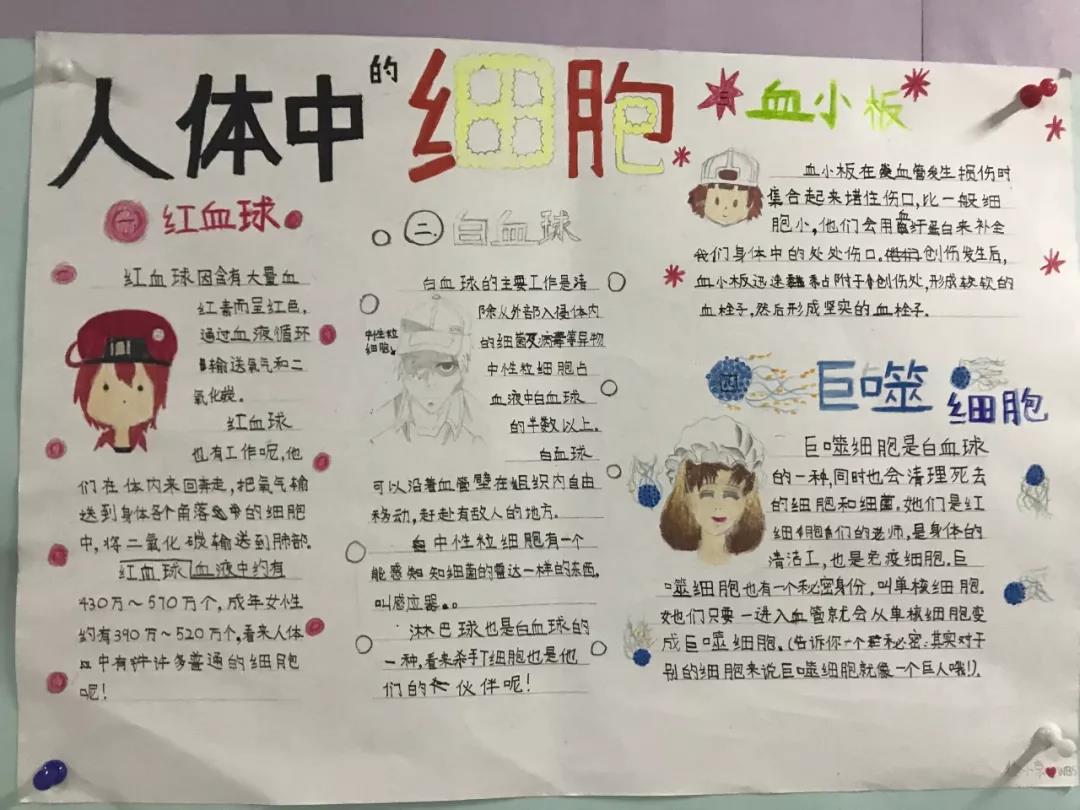 人体中的细胞
一 红血球
红血球因含有大量血
红素而呈红色,
通过血液循环
输送氧气和二
氧化碳。
红血球
也有工作呢,他
们在体内来回奔走,把氧气输
送到身体各个角落的细胞
中,将二氧化碳输送到肺部。
红血球血液中约有
430万~570万个,成年女性
约有390万~520万个,看来人体
中有许多普通的细胞
呢!
二 白血球
白血球的主要工作是清
除从外部入侵体内
的细菌及病毒等异物
中性粒细胞占
血液中白血球
的半数以上。
白血球
中性粒
细胞
可以沿着血管壁在组织内自由
移动,赶赴有敌人的地方。
中性粒细胞有一个
能感知知细菌的雷达一样的东西,
叫感应器。
淋巴球也是白血球的
一种,看来杀手T细胞也是他
们的伙伴呢!
三 血小板
血小板在血管发生损伤时
集合起来堵住伤口,比一般细
胞小,他们会用血纤蛋白来补全
我们身体中的处处伤口。创伤发生后,
血小板迅速黏附于创伤处,形成软软的
血栓子,然后形成坚实的血栓子.
四 巨噬
细胞
巨噬细胞是白血球
的一种,同时也会清理死去
的细胞和细菌,她们是红
细胞们的老师,是身体的
清洁工,也是免疫细胞.巨
噬细胞也有一个秘密身份,叫单核细胞.
她们只要一进入血管就会从单核细胞变
成巨噬细胞。(告诉你一个秘密:其实对于
别的细胞来说巨噬细胞就像一个巨人哦!).